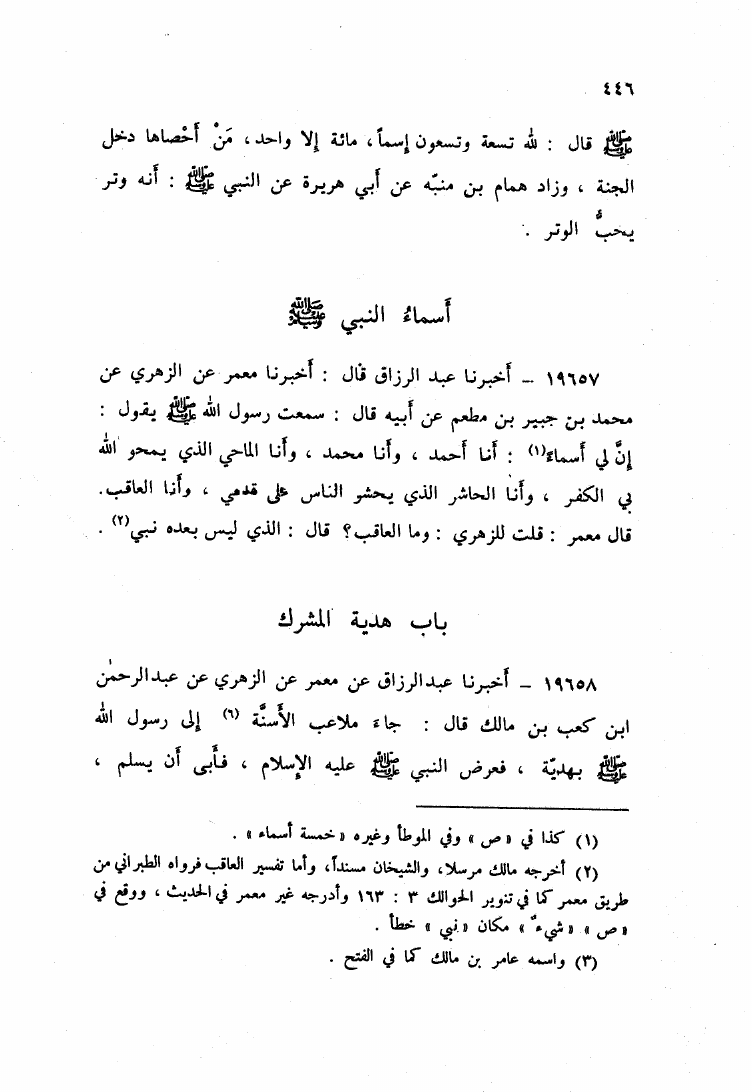 ٤٤٦
ﷺ قال : لله تسعة وتسعون إسماً، مائة إلا واحد، مَنْ أَحْصاها دخل
الجنة ، وزاد همام بن منبّه عن أبي هريرة عن النبي ﷺ : أنه وتر
يحبُّ الوتر .
أَسماءُ النبي ﷺ
١٩٦٥٧ – أخبرنا عبد الرزاق قال : أخبرنا معمر عن الزهري عن
محمد بن جبير بن مطعم عن أبيه قال : سمعت رسول الله ﷺ يقول :
إنَّ لي أسماءً(١) : أنا أحمد ، وأنا محمد ، وأنا الماحي الذي يمحو الله
بي الكفر ، وأنا الحاشر الذي يحشو الناس على قدمي ، وأنا العاقب.
قال معمر : قلت للزهري : وما العاقب؟ قال : الذي ليس بعده نبي(٢) .
باب هدية المشرك
١٩٦٥٨ – أخبرنا عبدالرزاق عن معمر عن الزهري عن عبدالرحمٰن
ابن كعب بن مالك قال : جاءَ ملاعب الأَسنَّة (٦) إلى رسول الله
ﷺ بهديّة ، فعرض النبي ﷺ عليه الإسلام ، فأبى أن يسلم ،
(١) كذا في «ص» وفي الموطأ وغيره «خمسة أسماء» .
(٢) أخرجه مالك مرسلا، والشيخان مسنداً، وأما تفسير العاقب فرواه الطبراني من
طريق معمر كما في تنوير الحوالك ٣ : ١٦٣ وأدرجه غير معمر في الحديث ، ووقع في
«ص» «شيء» مكان «نبي» خطأ .
(٣) واسمه عامر بن مالك كما في الفتح .